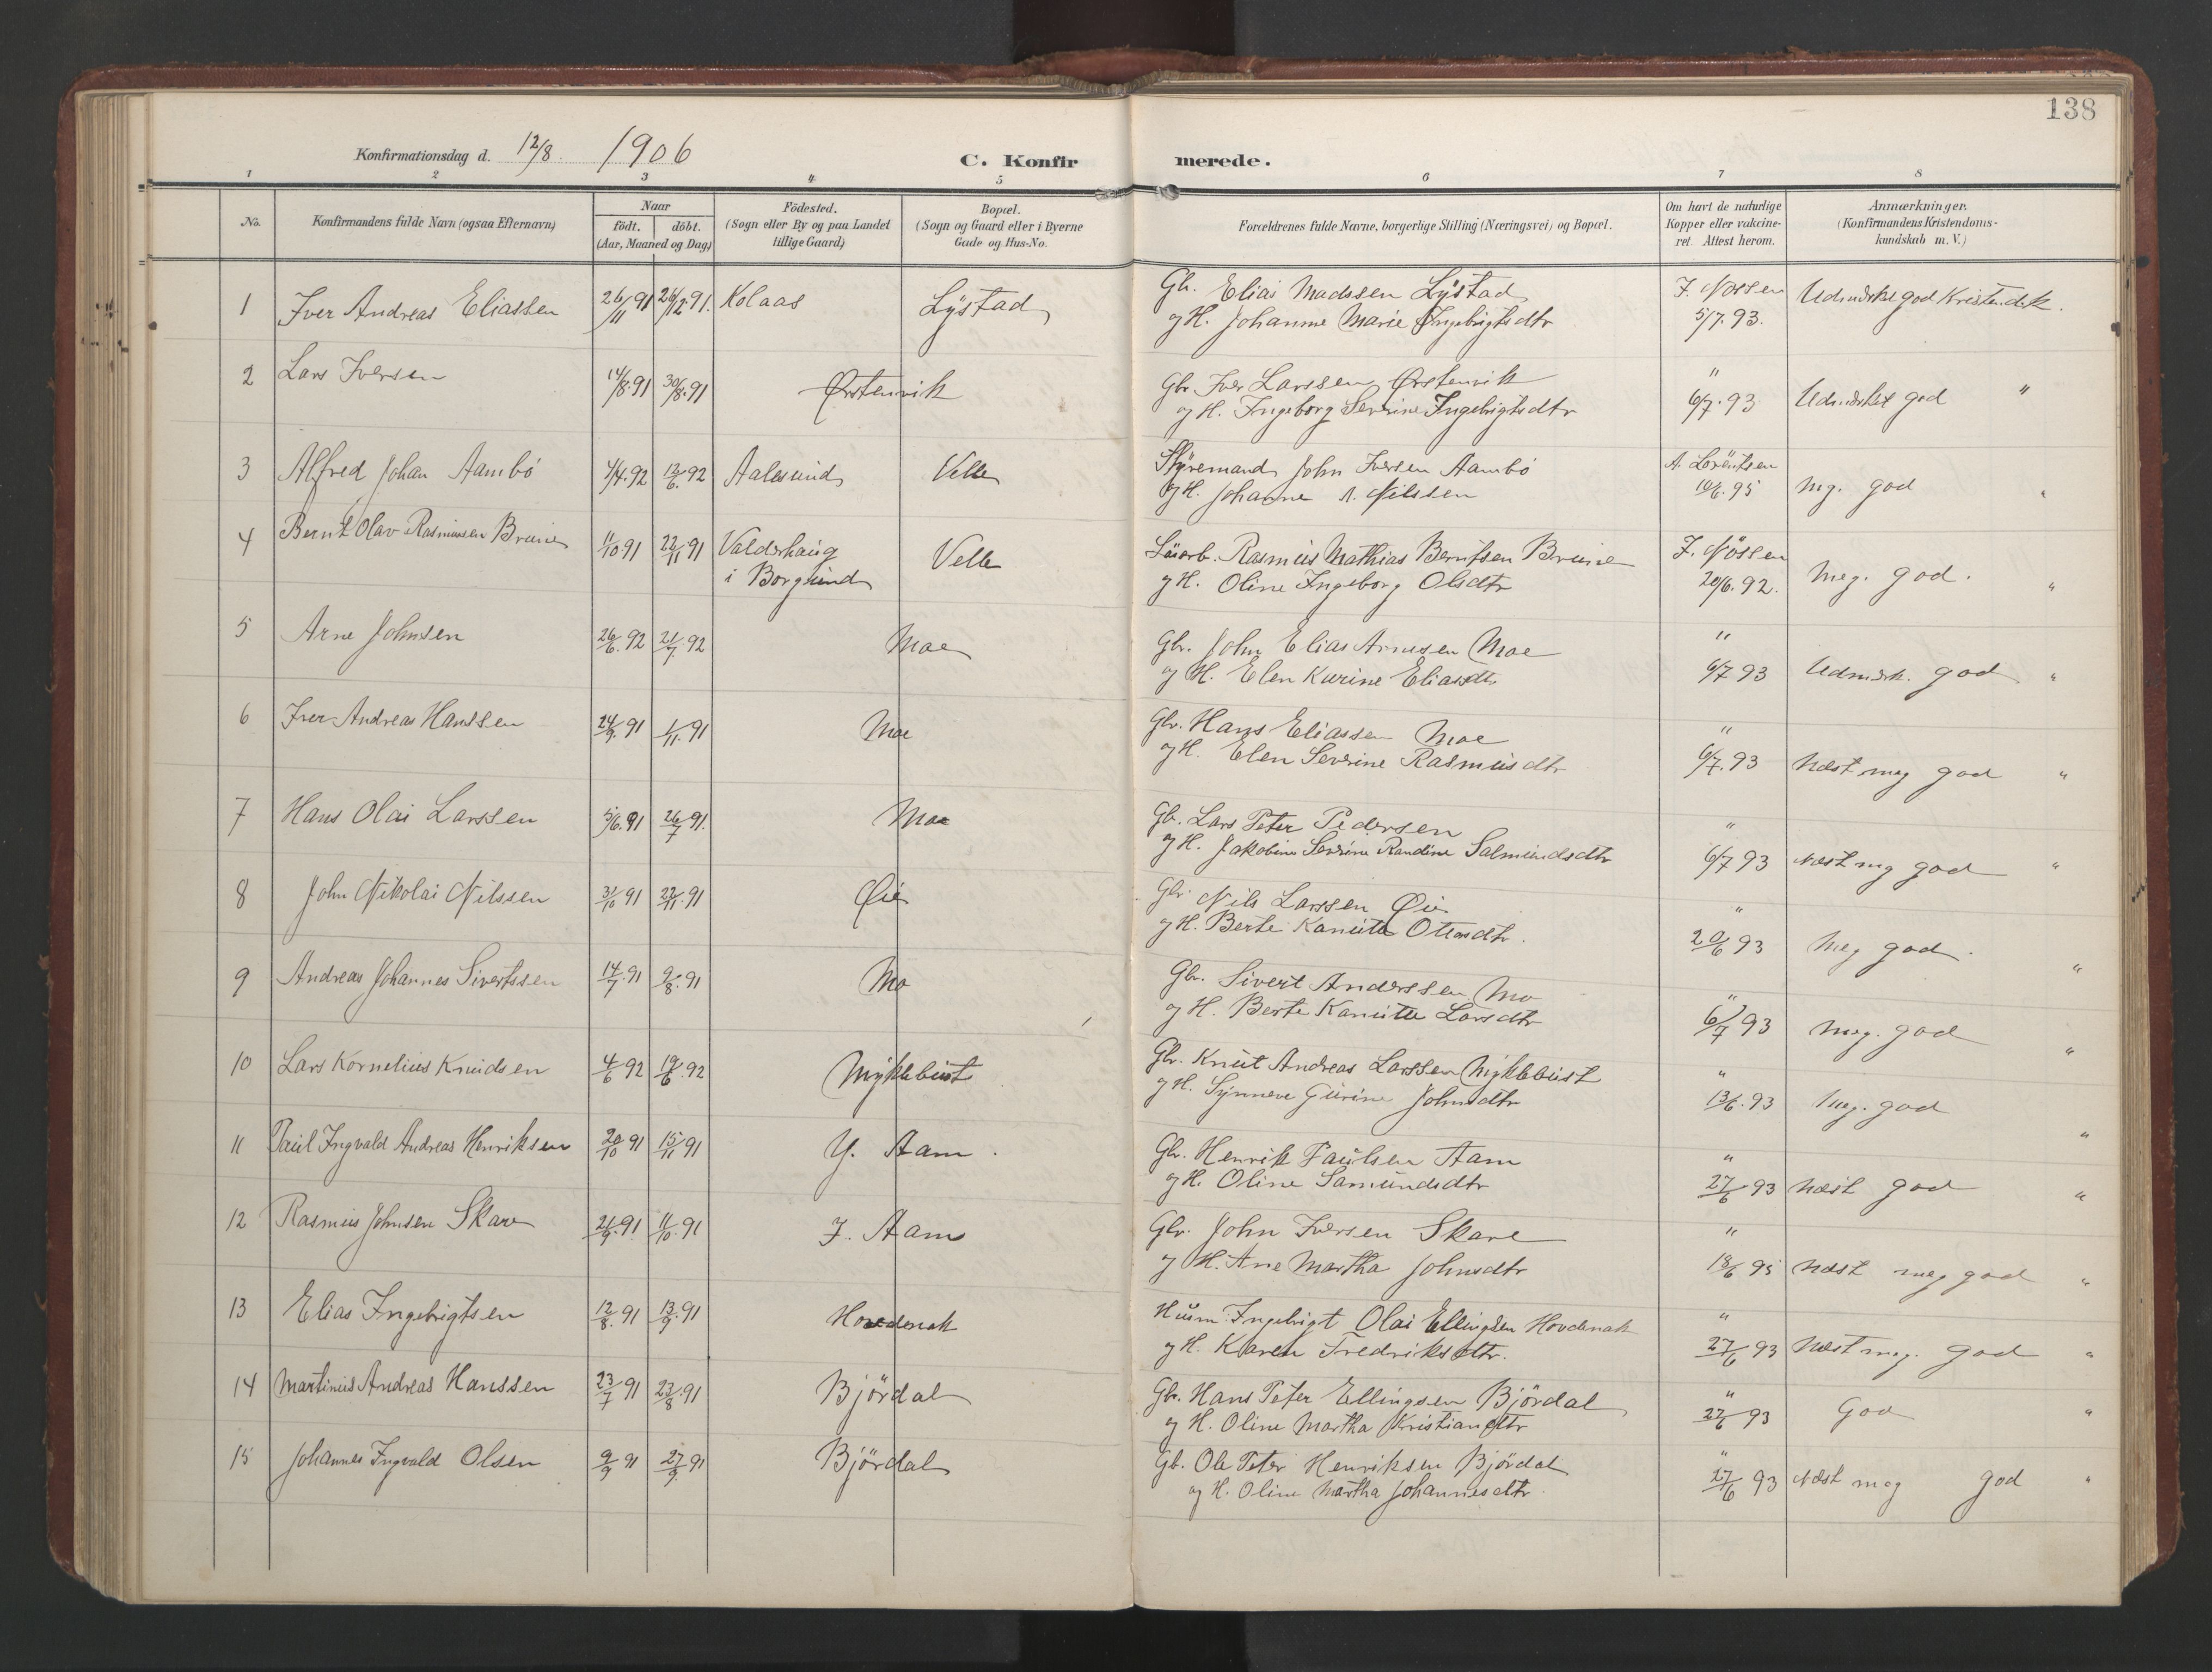 138
Konfirmationsdag d. 12/8 1906 C. Konfirmerede.
1 2 3 4 5 6 7 8
No. Konfirmandens fulde Navn (ogsaa Efternavn) Naar födt. döbt. (Aar, Maaned og Dag) Födested. (Sogn eller By og paa Landet tillige Gaard) Bopæl. (Sogn og Gaard eller i Byerne Gade og Hus-No. Forældrenes fulde Navne, borgerlige Stilling (Næringsvei) og Bopæl. Om havt de naturlige Kopper eller vakcineret. Attest herom. Anmærkninger. (Konfirmandens Kristendomskundskab m. V.)
1 Iver Andreas Eliassen 26/11 91 26/12 91. Kolaas Lystad Gbr. Elias Madssen Lystad J. Nössen Udmærket god Kristendsk.
og H. Johanne Marie Ingebrigtsdtr 5/7.93.
2 Lars Iversen 14/8.91 30/8.91 Ørstenvik Gbr. Iver Larssen Ørstenvik " Udmærket god "
og H. Ingeborg Severine Ingebrigtsdtr 6/7.93
3 Alfred Johan Aambö 4/4.92 12/6.92 Aalesund Velle Styremand John Iversen Aambö A. Lorentsen Mg. god "
og H. Johanne A. Nilssen 10/6.95
4 Bernt Olav Rasmussen Brune 11/10 91 22/11 91 Valderhaug Velle Lüarb. Rasmus Mathias Berntsen Brune J. Nössen Meg. god. "
i Borgund og H. Oline Ingeborg Olsdtr 20/6.92.
5 Arne Johnsen 26/6.92 21/7.92 Moe Gbr. John Elias Arnesen Moe " Udmærk. god "
og H. Elen Kurine Eliasdtr 6/7 93
6 Iver Andreas Hanssen 24/9.91 1/11.91 Moe Gbr. Hans Eliassen Moe " Næst meg god "
og H. Elen Severine Rasmusdtr 6/7.93
7 Hans Olai Larssen 5/6.91 26/7 91. Moe Gbr. Lars Peter Pedersen " Næst meg god "
og H. Jakobine Severine Randine Salmundsdtr 6/7 93
8 John Nikolai Nilssen 31/10 91 22/11.91 Øie Gbr. Nils Larssen Øie " Meg god. "
og H. Berte Kanutte Ottersdtr. 20/6 93
9 Andreas Johannes Sivertssen 14/7.91 9/8.91 Mo Gbr. Sivert Anderssen Mo " Meg. god "
og H. Berte Kanutte Larsdtr 6/7 93
10 Lars Kornelius Knudsen 4/6 92 19/6.92 Myklebust Gbr. Knut Andreas Larssen Myklebust " Meg. god "
og H. Synneve Gurine Johnsdtr 13/6.93
11 Paul Ingvald Andreas Henriksen 20/10 91 15/11 91 Y. Aam. Gbr. Henrik Paulsen Aam " Næst god "
og H. Oline Samundsdtr 27/6.93
12 Rasmus Johnsen Skare 21/9.91 11/10.91 I. Aam Gbr. John Iversen Skare " Næst meg god "
og H. Ane Martha Johnsdtr 18/6 95
13 Elias Ingebrigtsen 12/8.91 13/9.91 Hovdenak Husm. Ingebrigt Olai Ellingsen Hovdenak " Næst meg. god "
og H. Karen Fredriksdtr. 27/6 93
14 Martinus Andreas Hanssen 23/7 91 23/8.91 Björdal Gbr. Hans Peter Ellingsen Björdal " God "
og H. Oline Martha Kristiansdtr 27/6 93
15 Johannes Ingvald Olsen 9/9 91 27/9 91 Björdal Gb. Ole Peter Henriksen Björdal " Næst meg god "
og H. Oline Martha Johannesdtr. 27/6 93